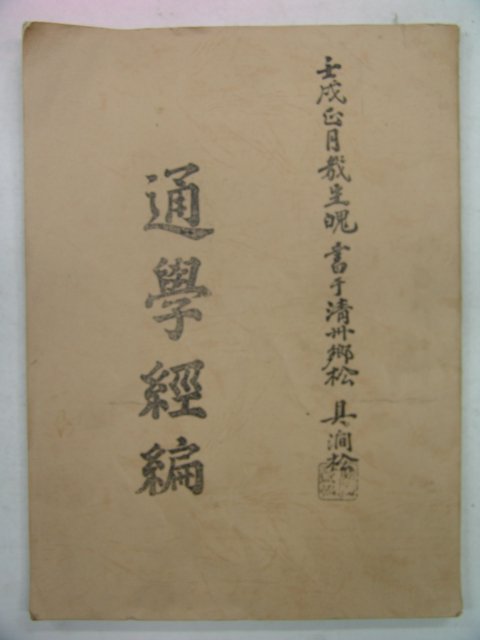 壬戌正月哉生魄書于清州鄉松 具澗松
通學經編